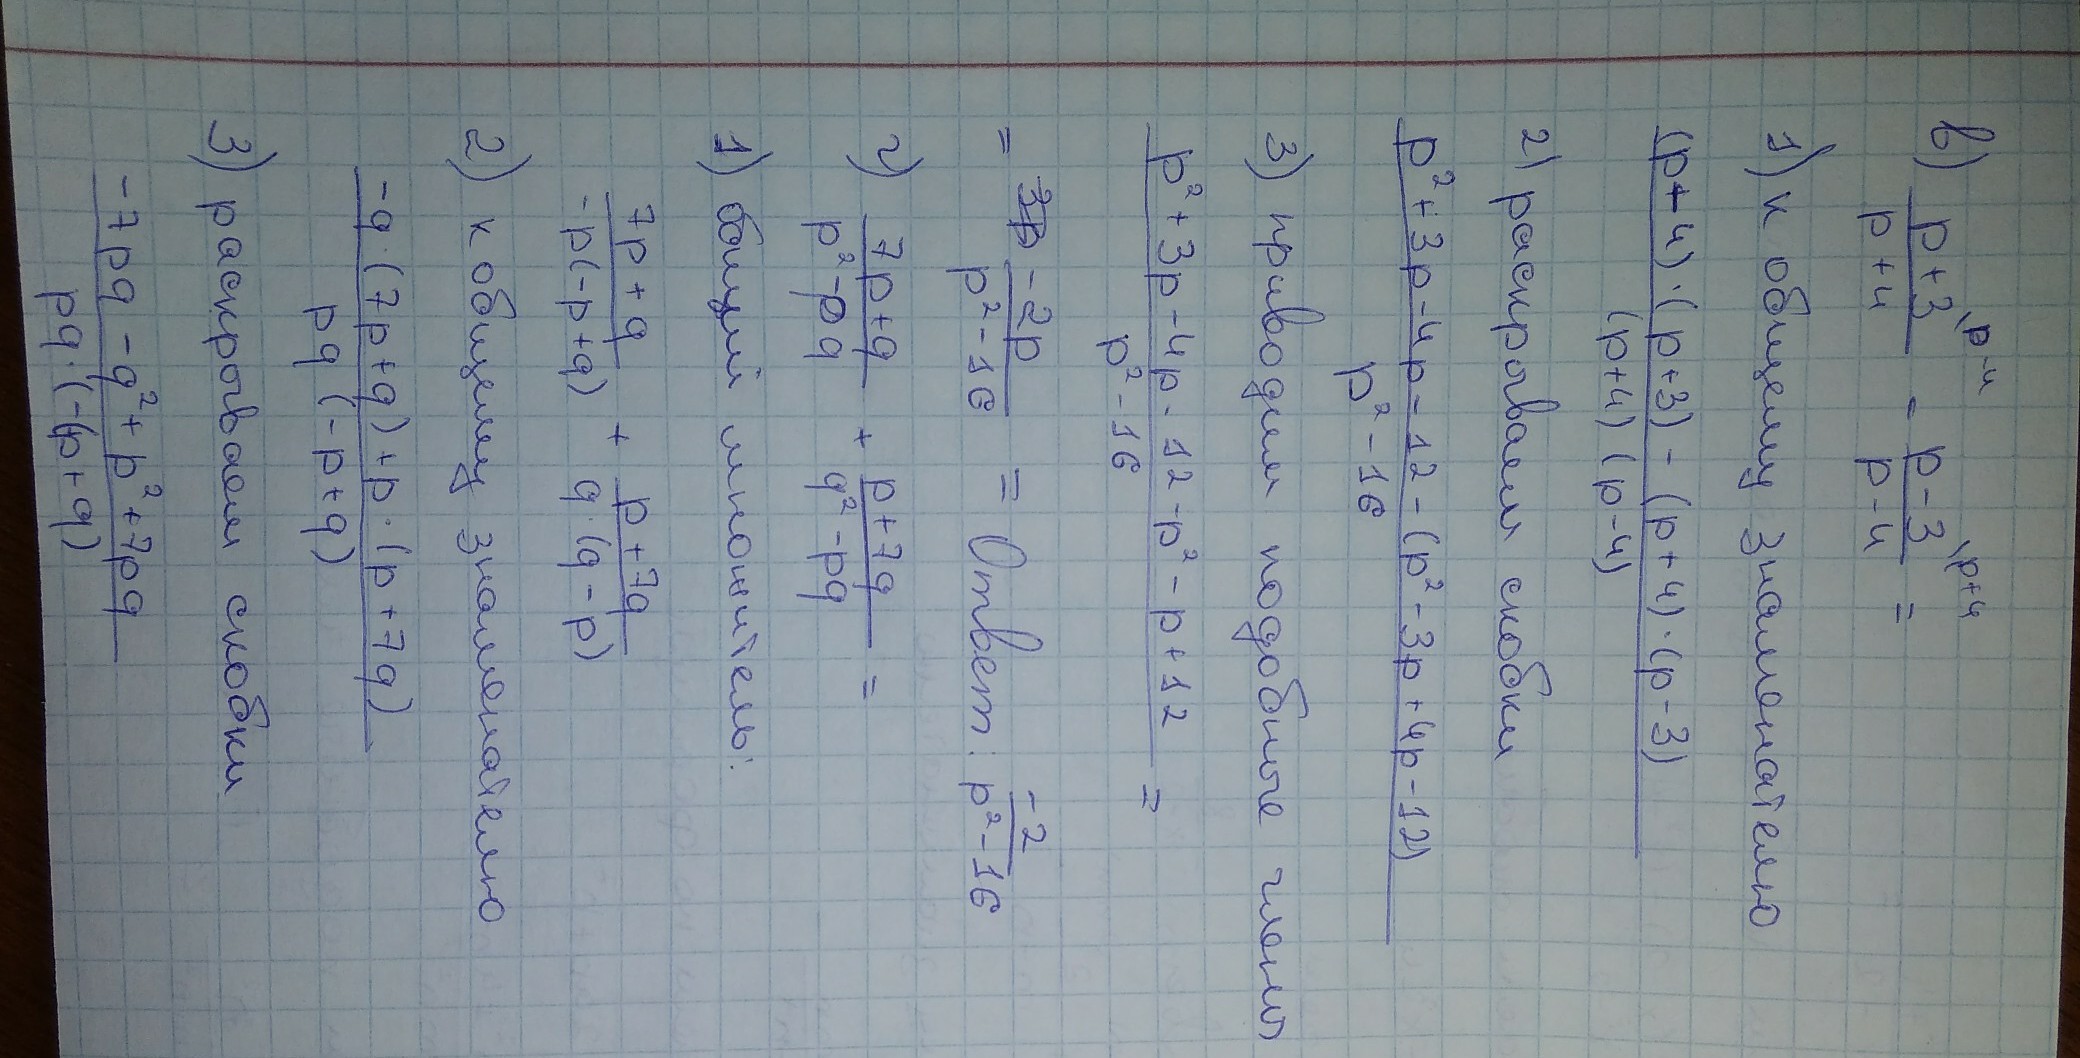 в) p+3/p+4 \p-4 - p-3/p-4 \p+4 =
1) к общему знаменателю
(p-4)·(p+3) - (p+4)·(p-3) / (p+4)(p-4)
2) раскрываем скобки
p²+3p-4p-12-(p²-3p+4p-12) / p²-16
3) приводим подобные члены
p²+3p-4p-12-p²-p+12 / p²-16 =
= -2p / p²-16 = Ответ: -2 / p²-16
г) 7p+q / p²-pq + p+7q / q²-pq =
1) общий множитель:
7p+q / -p(-p+q) + p+7q / q·(q-p)
2) к общему знаменателю
-q·(7p+q)+p·(p+7q) / pq(-p+q)
3) раскрываем скобки
-7pq-q²+p²+7pq / pq·(-p+q)